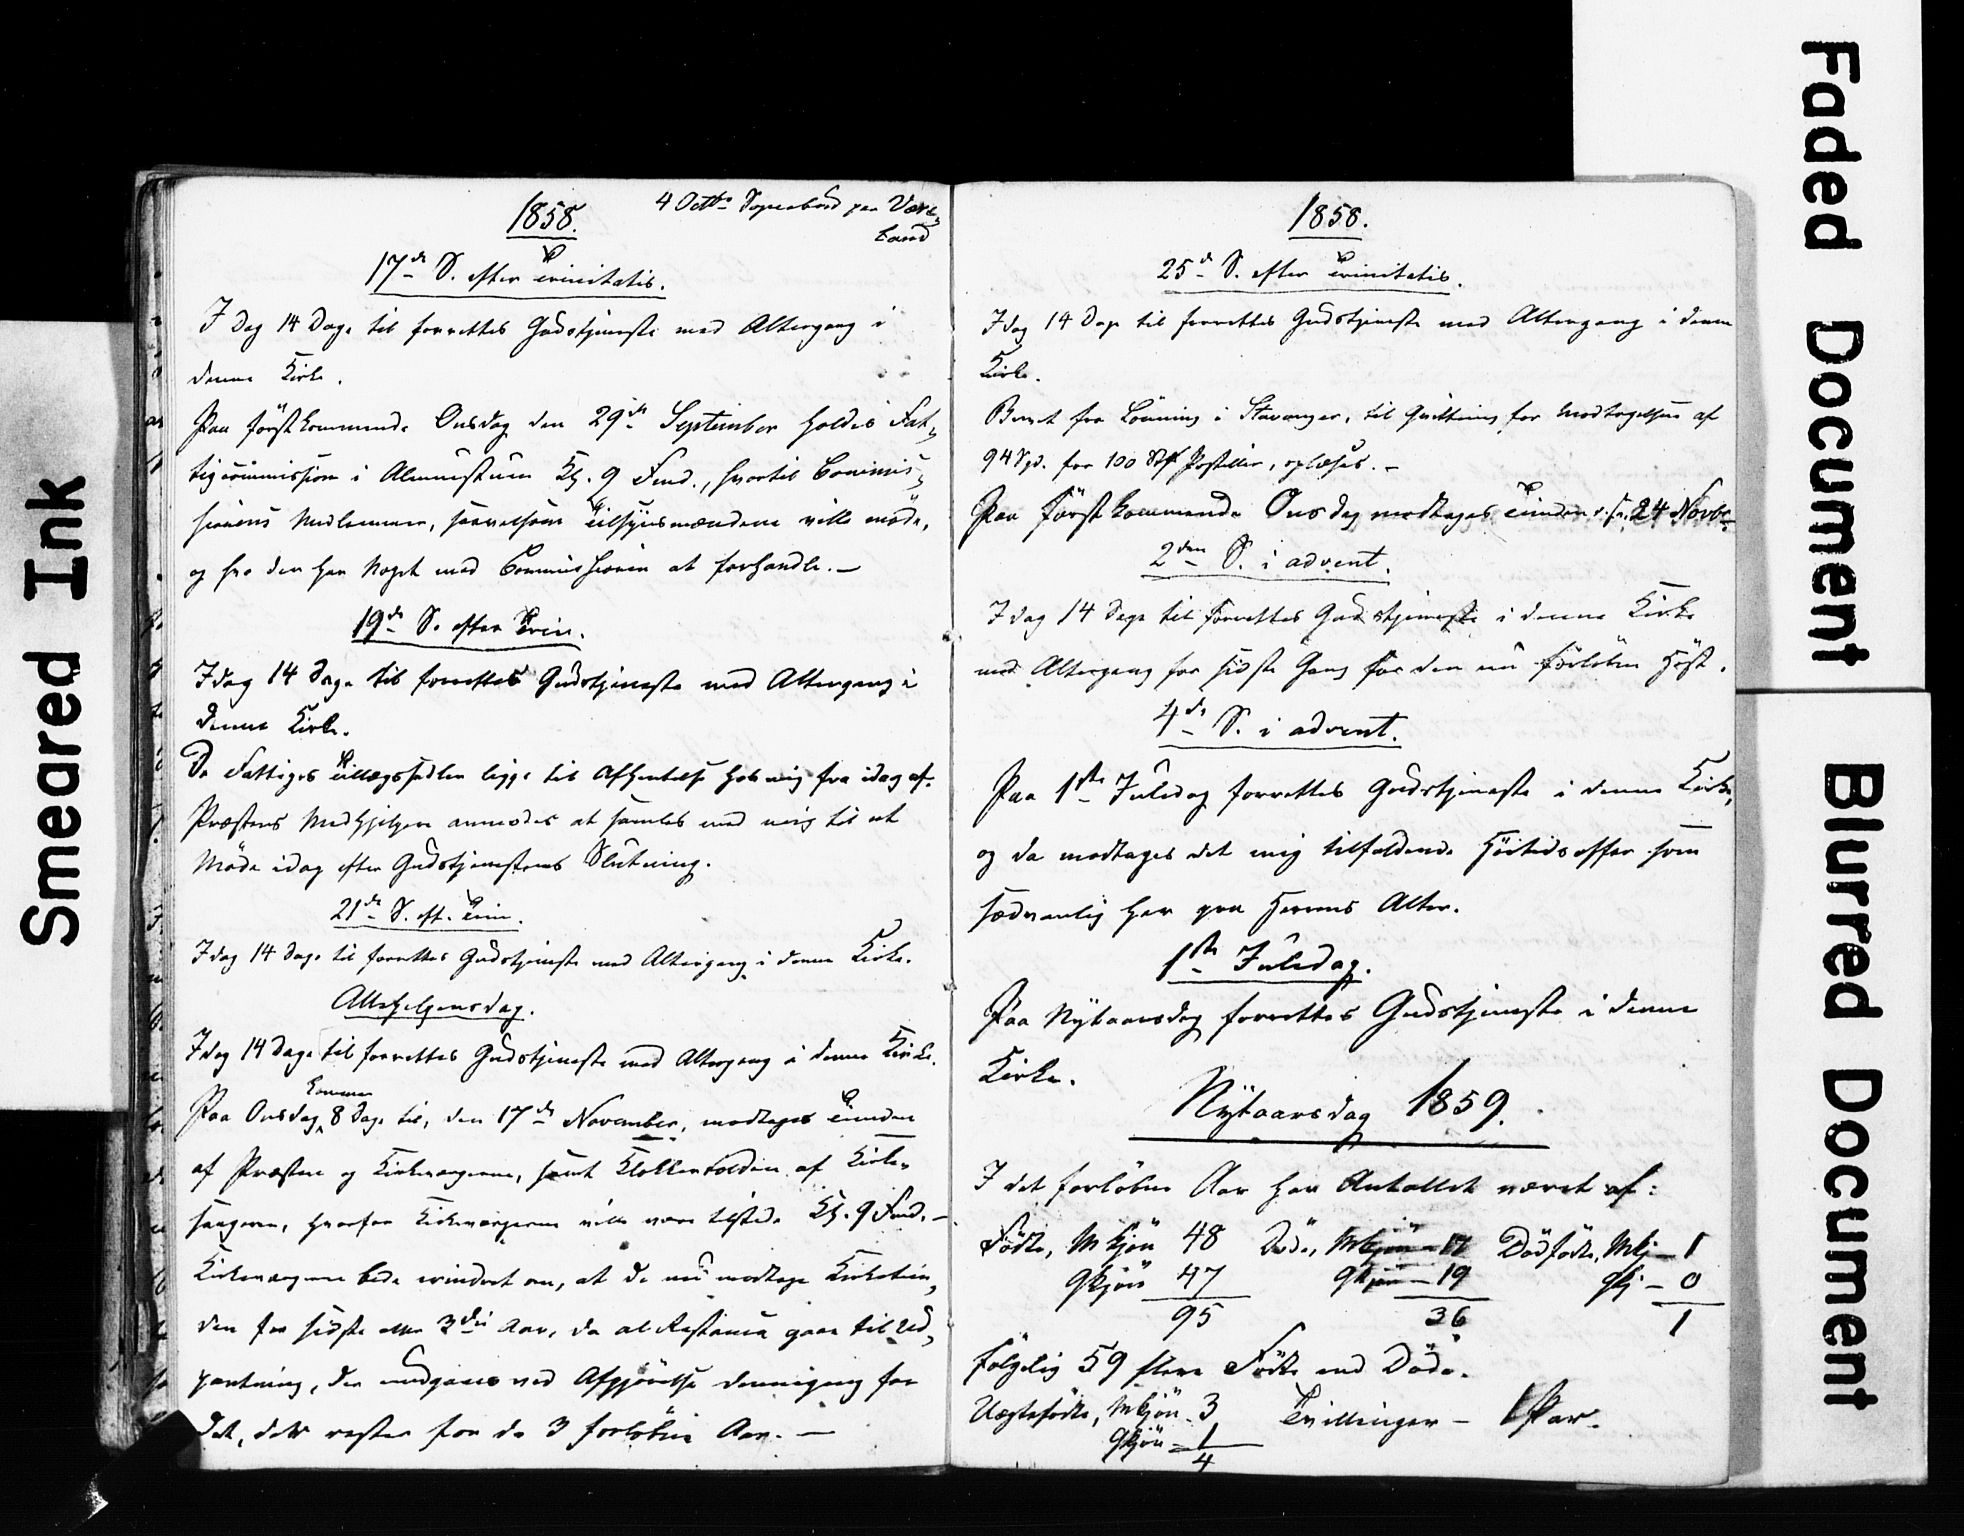 Smeared Ink
1858.
4 Octbr
17de S. efter Trinitatis.
I dag 14 Dage til forrettes Gudstjeneste med Altergang i
denne Kirke.
Paa førstkommende Onsdag den 29de September holdes Fat-
tigcommission i Almuestuen Kl. 9 Form., hvortil Commis-
sionens Medlemmer, saavelsom Tilsynsmændene ville møde,
og hvo der har Noget med Commissionen at forhandle. —
19de S. efter Trin.
Idag 14 Dage til forrettes Gudstjeneste med Altergang i
denne Kirke.
De Fattiges Tillægssedler ligge til Afhentelse hos mig fra idag af.
Præstens Medhjelpere anmodes at samles med mig til et
Møde idag efter Gudstjenestens Slutning.
21de S. eft. Trin.
Idag 14 Dage til forrettes Gudstjeneste med Altergang i denne Kirke.
Allehelgensdag.
Idag 14 Dage til forrettes Gudstjeneste med Altergang i denne Kirke.
Paa Onsdag kommer 8 Dage til, den 17de November, modtages Tienden
af Præsten og Kirkeværgerne, samt Klokkertolden af Kirke-
sangeren, hvorfor Kirkeværgerne ville være tilstede Kl. 9 Form. —
Kirkeværgerne bede erindret om, at de nu modtage Kirketien-
den for sidste eller 3die Aar, da al Restance gaar til Ud-
pantning, der undgaaes ved Afgjørelse dennegang for
det, der rester for de 3 forløbne Aar. —
1858.
25de S. efter Trinitatis.
Idag 14 Dage til forrettes Gudstjeneste med Altergang i denne
Kirke.
fra Lønning i Stavanger, til Qvittering for Modtagelsen af
94 Spd. for 100 Postiller, oplæses. —
Paa førstkommende Onsdag modtages Tienden 24 Novbr
2den S. i advent.
Idag 14 Dage til forrettes Gudstjeneste i denne Kirke
med Altergang for sidste Gang for den nu forløbne Høst.
4de S. i advent.
Paa 1ste Juledag forrettes Gudstjeneste i denne Kirke,
og da modtages det mig tilfaldende Høitidsoffer som
sædvanlig her paa Herrens Alter.
1ste Juledag.
Paa Nytaarsdag forrettes Gudstjeneste i denne
Kirke.
Nytaarsdag 1859.
I det forløbne Aar har Antallet været af:
Fødte, Mkjøn 48 Døde, Mkjøn — 17 Dødfødte, Mkj — 1
Qkjøn 47 Qkjøn — 19 Qkj — 0
95 36 1
følgelig 59 flere Fødte end Døde.
Uægtefødte, Mkjøn 3 Tvillinger — 1 Par.
Qkjøn — 1
4
Faded Document
Blurred Document